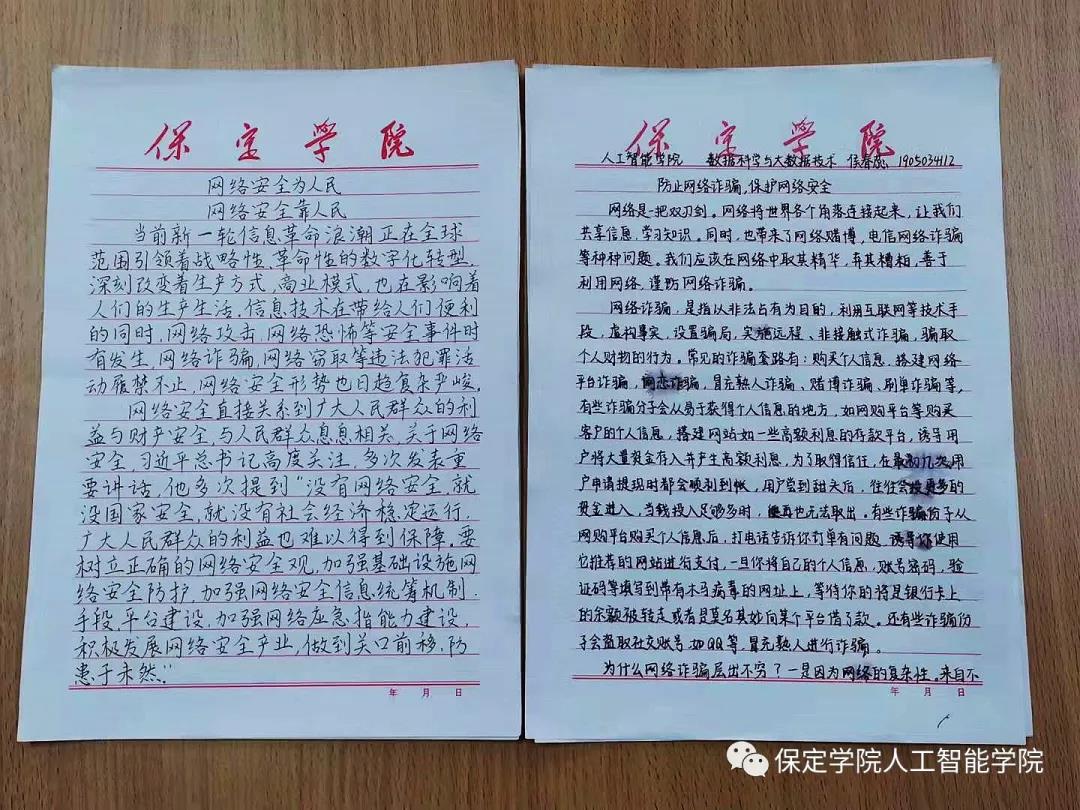 保定学院
网络安全为人民
网络安全靠人民
当前新一轮信息革命浪潮正在全球
范围引领着战略性、革命性的数字化转型,
深刻改变着生产方式、商业模式,也在影响着
人们的生产生活。信息技术在带给人们便利
的同时,网络攻击、网络恐怖等安全事件时
有发生,网络诈骗、网络窃取等违法犯罪活
动屡禁不止,网络安全形势也日趋复杂严峻。
网络安全直接关系到广大人民群众的利
益与财产安全,与人民群众息息相关。关于网络
安全,习近平总书记高度关注,多次发表重
要讲话,他多次提到“没有网络安全,就
没国家安全,就没有社会经济稳定运行,
广大人民群众的利益也难以得到保障,要
树立正确的网络安全观,加强基础设施网
络安全防护,加强网络安全信息统筹机制、
手段、平台建设,加强网络应急指能力建设,
积极发展网络安全产业,做到关口前移,防
患于未然。”
年 月 日
保定学院
人工智能学院 数据科学与大数据技术 侯春 1905034112
防止网络诈骗,保护网络安全
网络是一把双刃剑。网络将世界各个角落连接起来,让我们
共享信息,学习知识。同时,也带来了网络赌博,电信网络诈骗
等种种问题。我们应该在网络中取其精华,弃其糟粕,善于
利用网络,谨防网络诈骗。
网络诈骗,是指以非法占有为目的,利用互联网等技术手
段,虚构事实,设置骗局,实施远程、非接触式诈骗,骗取
个人财物的行为。常见的诈骗套路有:购买个人信息,搭建网络
平台诈骗,网恋诈骗,冒充熟人诈骗、赌博诈骗、刷单诈骗等。
有些诈骗分子会从易于获得个人信息的地方,如网购平台等购买
客户的个人信息,搭建网站如一些高额利息的存款平台,诱导用
户将大量资金存入并产生高额利息,为了取得信任,在最初几次用
户申请提现时都会顺利到帐,用户尝到甜头后,往往会投更多的
资金进入,当钱投入足够多时,便再也无法取出。有些诈骗份子从
网购平台购买个人信息后,打电话告诉你订单有问题,诱导你使用
它推荐的网站进行支付,一旦你将自己的个人信息,账号密码,验
证码等填写到带有木马病毒的网址上,等待你的将是银行卡上
的余额被转走或者是莫名其妙向某个平台借了款。还有些诈骗份
子会盗取社交账号,如QQ等,冒充熟人进行诈骗。
为什么网络诈骗层出不穷?一是因为网络的复杂性。来自不
年 月 日
保定学院人工智能学院